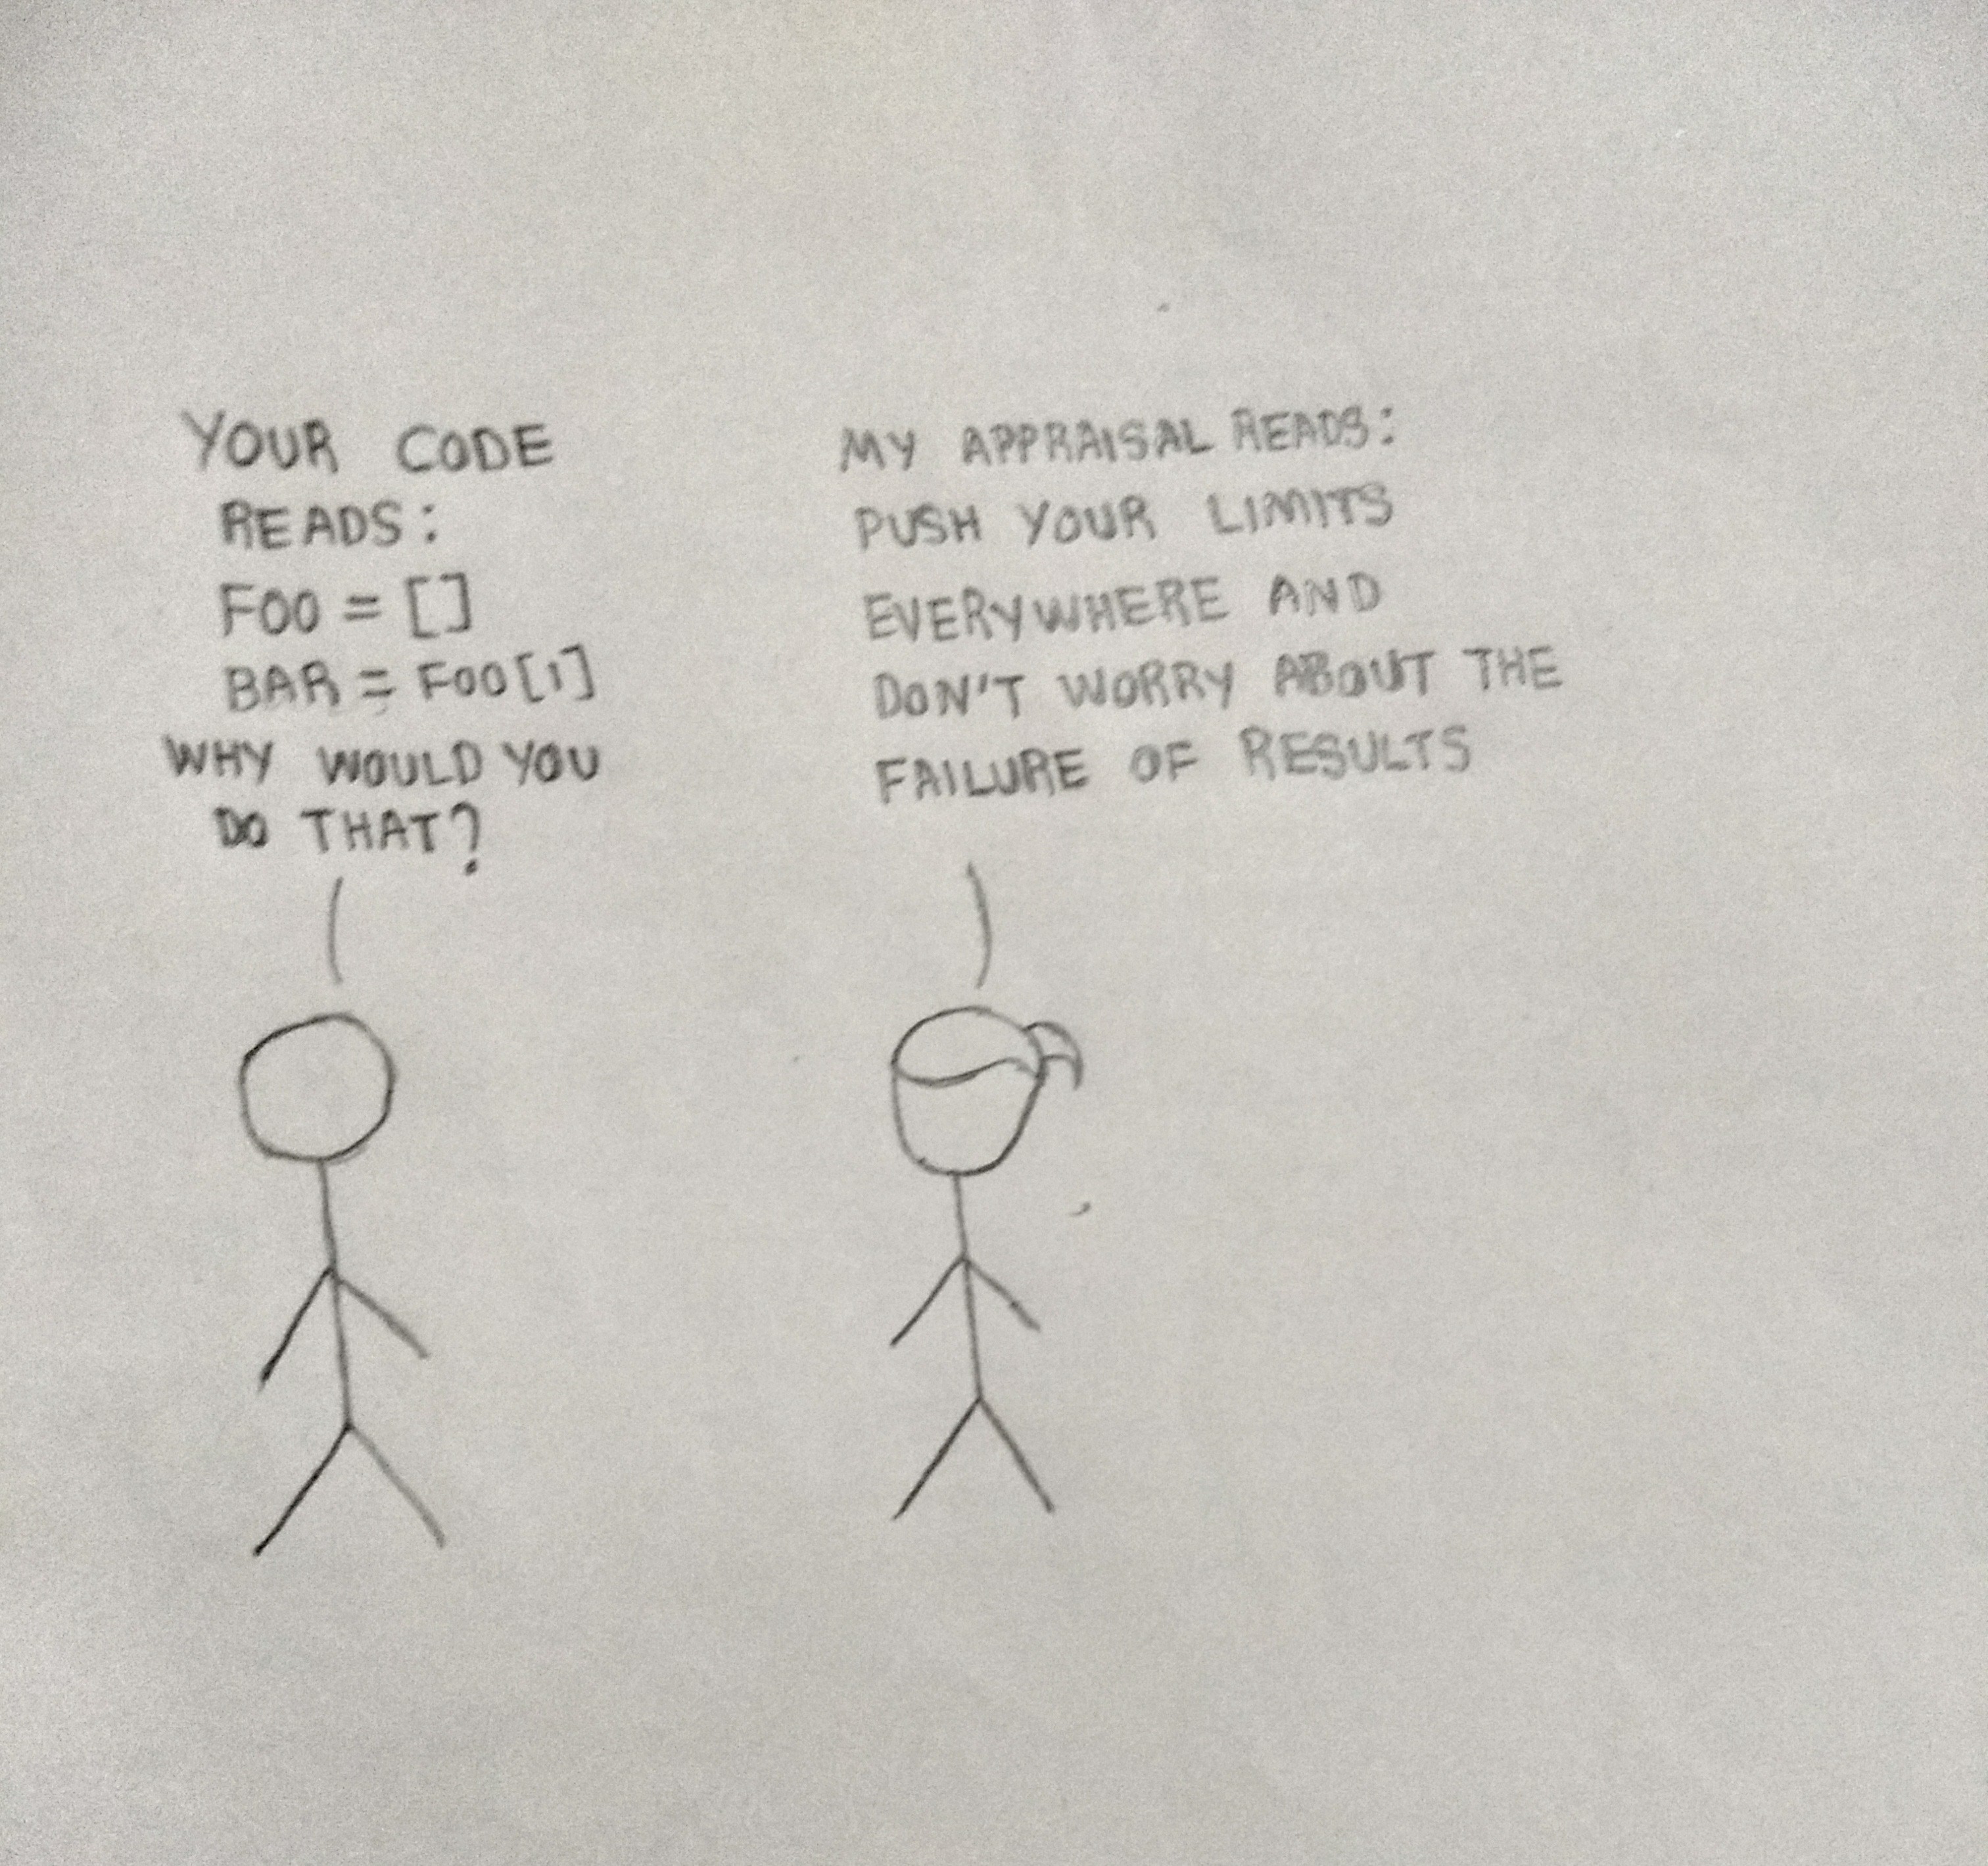 YOUR CODE
READS:
FOO = []
BAR = FOO[1]
WHY WOULD YOU
DO THAT?
MY APPRAISAL READS:
PUSH YOUR LIMITS
EVERYWHERE AND
DON'T WORRY ABOUT THE
FAILURE OF RESULTS